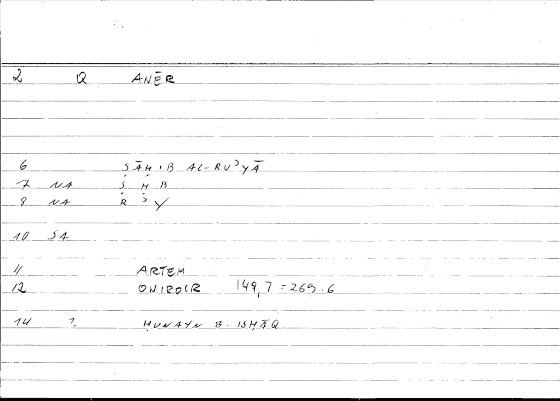 2 Q ANĒR
6 ṢĀḤIB AL-RUʾYĀ
7 NA Ṣ Ḥ B
8 NA R ʾ Y
10 SA
11 ARTEM
12 ONIROCR 149,7 = 269.6
14 ? ḤUNAYN B. ISḤĀQ